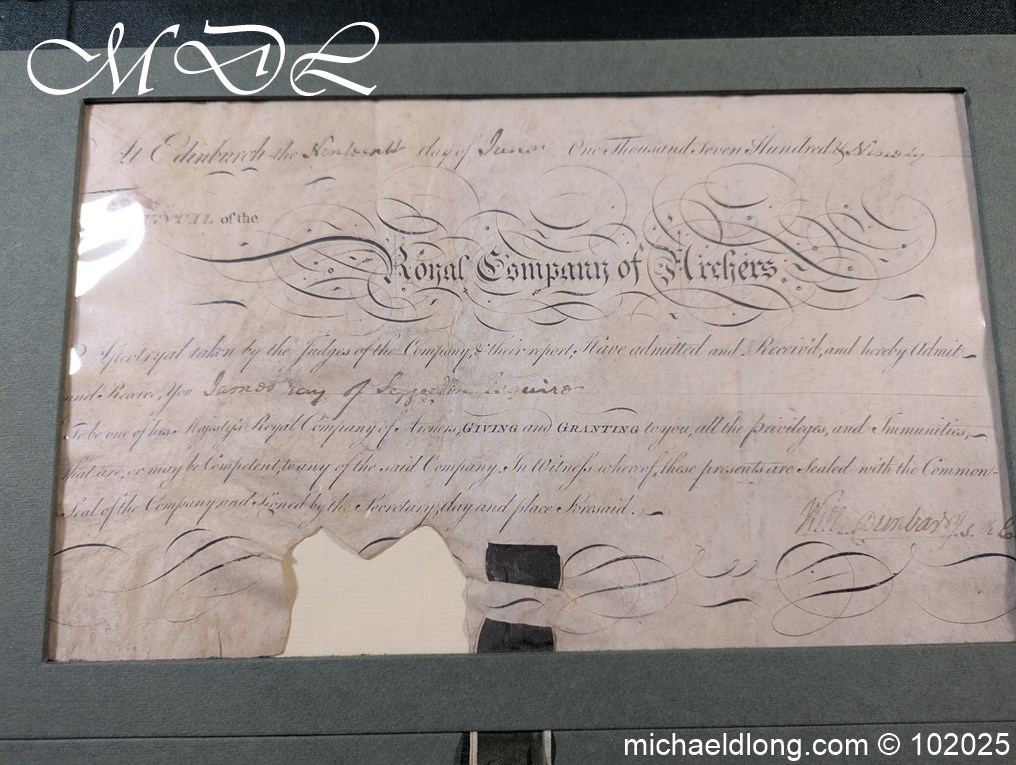 MDL
At Edinburgh the day of One Thousand Seven Hundred & Ninety
of the
Royal Company of Archers
After tryal taken by the Judges of the Company, & their report, Have admitted and Receivd, and hereby Admit
and Receive, You James of Esquire
To be one of his Majesty's Royal Company of Archers, GIVING and GRANTING to you, all the Privileges, and Immunities,
that are, or may be Competent, to any of the said Company. In Witness whereof, these presents are Sealed with the Common
Seal of the Company, and Signed by the Secretary, day and place foresaid.
Dunbar
michaeldlong.com © 102025